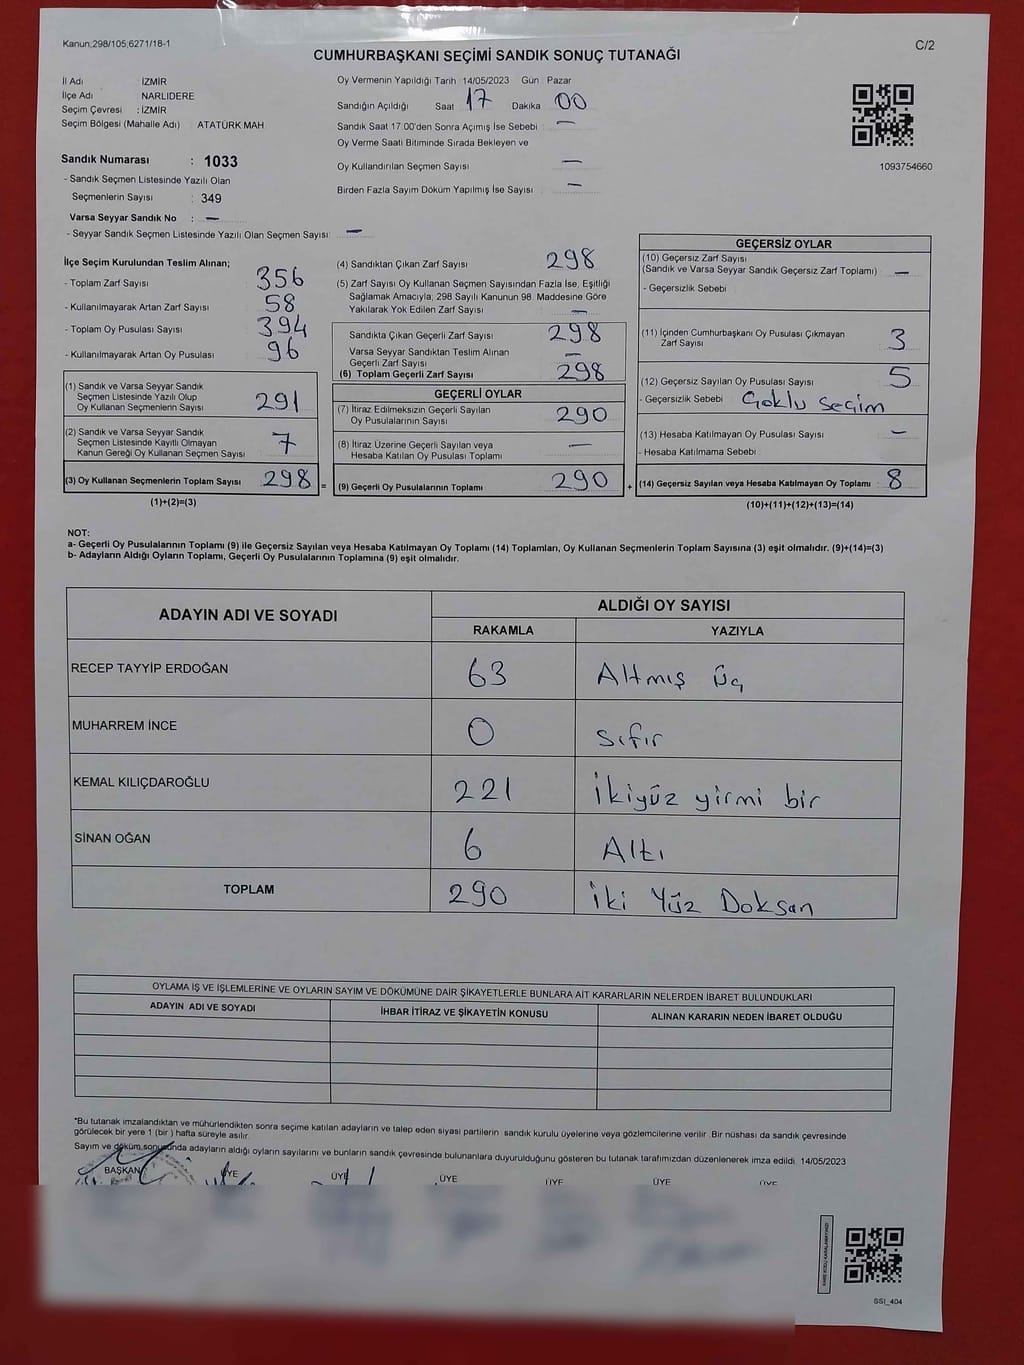 Kanun;298/105;6271/18-1
C/2
CUMHURBAŞKANI SEÇİMİ SANDIK SONUÇ TUTANAĞI
İl Adı İZMİR
İlçe Adı NARLIDERE
Seçim Çevresi : İZMİR
Seçim Bölgesi (Mahalle Adı) ATATÜRK MAH
Sandık Numarası : 1033
- Sandık Seçmen Listesinde Yazılı Olan
Seçmenlerin Sayısı : 349
Varsa Seyyar Sandık No : —
- Seyyar Sandık Seçmen Listesinde Yazılı Olan Seçmen Sayısı: —
Oy Vermenin Yapıldığı Tarih 14/05/2023 Gün Pazar
Sandığın Açıldığı Saat 17 Dakika 00
Sandık Saat 17:00'den Sonra Açımış İse Sebebi : —
Oy Verme Saati Bitiminde Sırada Bekleyen ve
Oy Kullandırılan Seçmen Sayısı —
Birden Fazla Sayım Döküm Yapılmış İse Sayısı —
1093754660
İlçe Seçim Kurulundan Teslim Alınan;
- Toplam Zarf Sayısı 356
- Kullanılmayarak Artan Zarf Sayısı 58
- Toplam Oy Pusulası Sayısı 394
- Kullanılmayarak Artan Oy Pusulası 96
(1) Sandık ve Varsa Seyyar Sandık
Seçmen Listesinde Yazılı Olup
Oy Kullanan Seçmenlerin Sayısı 291
(2) Sandık ve Varsa Seyyar Sandık
Seçmen Listesinde Kayıtlı Olmayan
Kanun Gereği Oy Kullanan Seçmen Sayısı 7
(3) Oy Kullanan Seçmenlerin Toplam Sayısı 298 =
(1)+(2)=(3)
(4) Sandıktan Çıkan Zarf Sayısı 298
(5) Zarf Sayısı Oy Kullanan Seçmen Sayısından Fazla İse, Eşitliği
Sağlamak Amacıyla; 298 Sayılı Kanunun 98. Maddesine Göre
Yakılarak Yok Edilen Zarf Sayısı —
Sandıkta Çıkan Geçerli Zarf Sayısı 298
Varsa Seyyar Sandıktan Teslim Alınan
Geçerli Zarf Sayısı —
(6) Toplam Geçerli Zarf Sayısı 298
GEÇERLİ OYLAR
(7) İtiraz Edilmeksizin Geçerli Sayılan
Oy Pusulalarının Sayısı 290
(8) İtiraz Üzerine Geçerli Sayılan veya
Hesaba Katılan Oy Pusulası Toplamı —
(9) Geçerli Oy Pusulalarının Toplamı 290 +
GEÇERSİZ OYLAR
(10) Geçersiz Zarf Sayısı
(Sandık ve Varsa Seyyar Sandık Geçersiz Zarf Toplamı) —
- Geçersizlik Sebebi
(11) İçinden Cumhurbaşkanı Oy Pusulası Çıkmayan
Zarf Sayısı 3
(12) Geçersiz Sayılan Oy Pusulası Sayısı 5
- Geçersizlik Sebebi Çoklu seçim
(13) Hesaba Katılmayan Oy Pusulası Sayısı —
- Hesaba Katılmama Sebebi
(14) Geçersiz Sayılan veya Hesaba Katılmayan Oy Toplamı 8
(10)+(11)+(12)+(13)=(14)
NOT:
a- Geçerli Oy Pusulalarının Toplamı (9) ile Geçersiz Sayılan veya Hesaba Katılmayan Oy Toplamı (14) Toplamları, Oy Kullanan Seçmenlerin Toplam Sayısına (3) eşit olmalıdır. (9)+(14)=(3)
b- Adayların Aldığı Oyların Toplamı, Geçerli Oy Pusulalarının Toplamına (9) eşit olmalıdır.
ADAYIN ADI VE SOYADI ALDIĞI OY SAYISI
RAKAMLA YAZIYLA
RECEP TAYYİP ERDOĞAN 63 Altmış üç
MUHARREM İNCE 0 sıfır
KEMAL KILIÇDAROĞLU 221 ikiyüz yirmi bir
SİNAN OĞAN 6 Altı
TOPLAM 290 iki Yüz Doksan
OYLAMA İŞ VE İŞLEMLERİNE VE OYLARIN SAYIM VE DÖKÜMÜNE DAİR ŞİKAYETLERLE BUNLARA AİT KARARLARIN NELERDEN İBARET BULUNDUKLARI
ADAYIN ADI VE SOYADI İHBAR İTİRAZ VE ŞİKAYETİN KONUSU ALINAN KARARIN NEDEN İBARET OLDUĞU
*Bu tutanak imzalandıktan ve mühürlendikten sonra seçime katılan adayların ve talep eden siyasi partilerin sandık kurulu üyelerine veya gözlemcilerine verilir. Bir nüshası da sandık çevresinde
görülecek bir yere 1 (bir) hafta süreyle asılır.
Sayım ve döküm sonucunda adayların aldığı oyların sayılarını ve bunların sandık çevresinde bulunanlara duyurulduğunu gösteren bu tutanak tarafımızdan düzenlenerek imza edildi. 14/05/2023
BAŞKAN ÜYE ÜYE ÜYE ÜYE ÜYE ÜYE
SSI_404